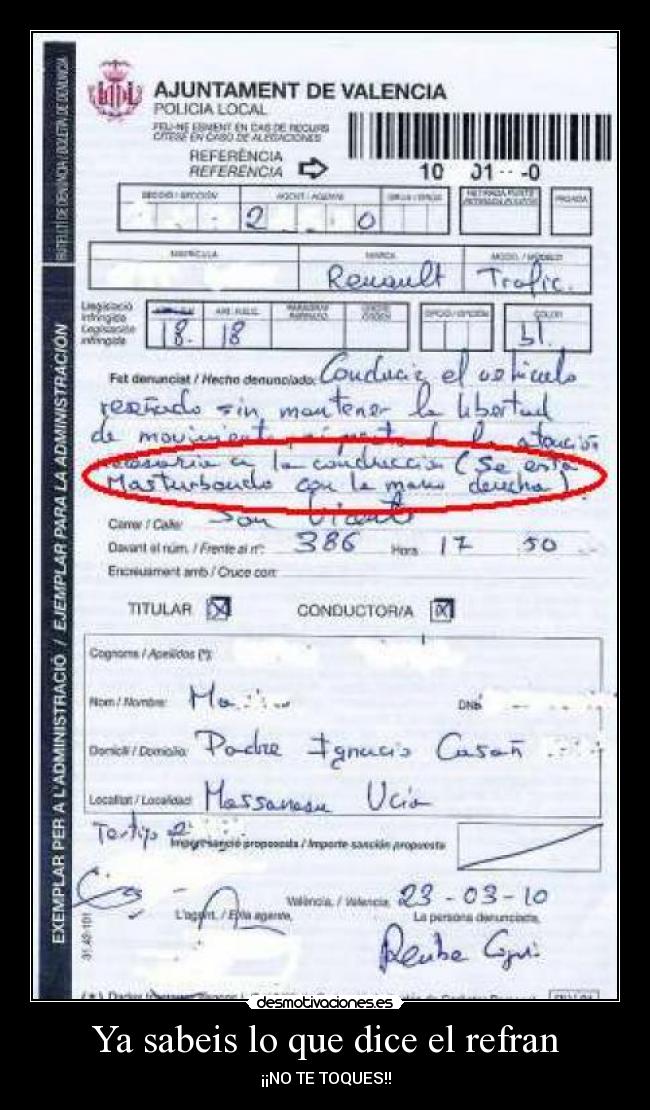 BUTLLETÍ DE DENÚNCIA / BOLETÍN DE DENUNCIA
EXEMPLAR PER A L'ADMINISTRACIÓ / EJEMPLAR PARA LA ADMINISTRACIÓN
AJUNTAMENT DE VALENCIA
POLICIA LOCAL
FEU-NE ESMENT EN CAS DE RECURS
CÍTESE EN CASO DE ALEGACIONES
REFERÈNCIA
REFERENCIA
10 01 -0
SECCIÓ / SECCIÓN AGENT / AGENTE GRUA / GRÚA
2 0
MATRÍCULA MARCA MODEL / MODELO
Renault Trafic.
Legislació
infringida
Legislación
infringida
18. 18 COLOR bl.
Fet denunciat / Hecho denunciado: Conducir el vehiculo
reseñado sin mantener la libertad
de movimientos la atención
necesaria a la conduccion (Se está
Masturbando con la mano derecha)
Carrer / Calle: San Vicente
Davant el núm. / Frente al nº: 386 Hora 17 50
Encreuament amb / Cruce con:
TITULAR CONDUCTOR/A
Cognoms / Apellidos (*):
Nom / Nombre: Ma DNI
Domicili / Domicilio: Padre Ignacio Casañ
Localitat / Localidad: Massanasa
Testigo 2
Import sanció proposada / Importe sanción propuesta
València, / Valencia, 23-03-10
L'agent, / El/la agente, La persona denunciada,
31.49-101
desmotivaciones.es
Ya sabeis lo que dice el refran
¡¡NO TE TOQUES!!